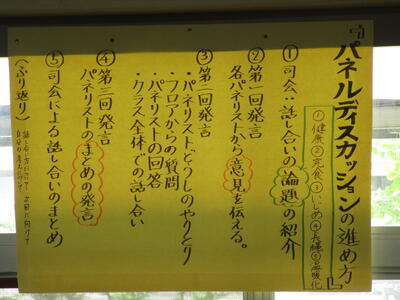 『パネルディスカッションの進め方』
①健康②完食③いじめ④長縄⑤温暖化
①司会:話し合いの論題の紹介
②第一回発言
各パネリストから意見を伝える。
③第二回発言
・パネリストどうしのやりとり
・フロアからの質問
パネリストの回答
・クラス全体での話し合い
④第三回発言
パネリストのまとめの発言
⑤司会による話し合いのまとめ
(ふり返り)